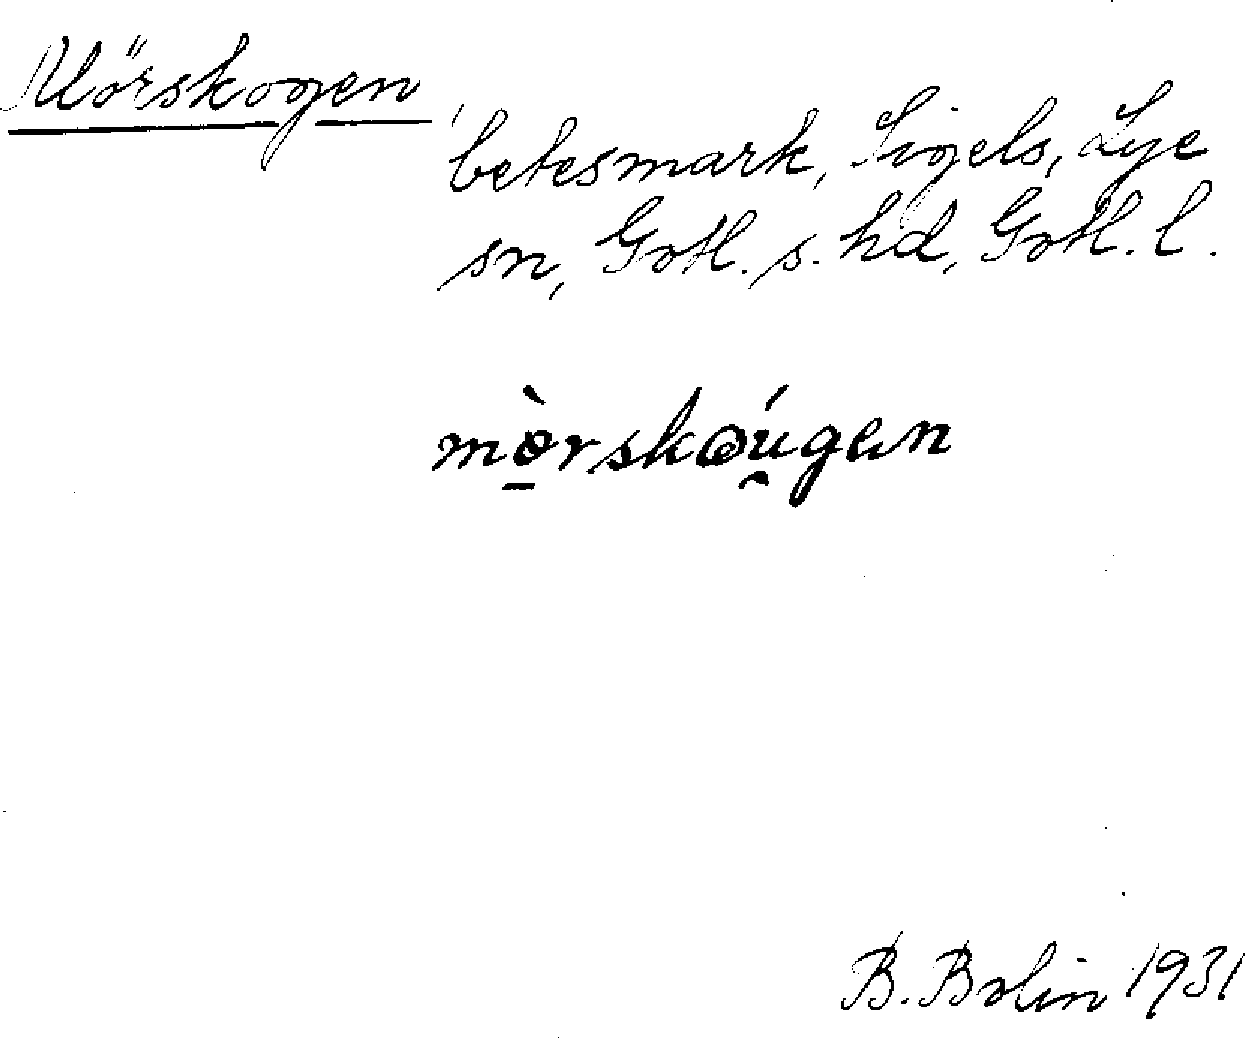 Mörskogen
betesmark, Sigels, Lye
sn, Gotl. s. hd, Gotl. l.
mörskǫu̯gen
B. Bolin 1931